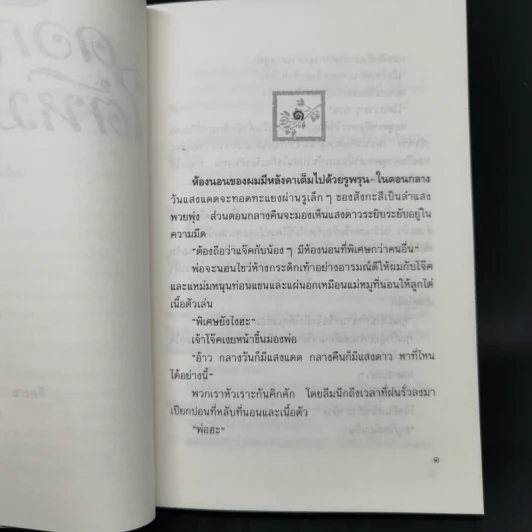 ๑
ห้องนอนของผมมีหลังคาเต็มไปด้วยรูพรุน- ในตอนกลาง
วันแสงแดดจะทอดทะแยงผ่านรูเล็ก ๆ ของสังกะสีเป็นลำแสง
พวยพุ่ง ส่วนตอนกลางคืนจะมองเห็นแสงดาวระยิบระยับอยู่ใน
ความมืด
"ต้องถือว่าแจ๊คกับน้อง ๆ มีห้องนอนที่พิเศษกว่าคนอื่น"
พ่อจะนอนไขว่ห้างกระดิกเท้าอย่างอารมณ์ดีให้ผมกับโจ๊ค
และแหม่มหนุนท่อนแขนและแผ่นอกเหมือนแม่หมูที่นอนให้ลูกไต่
เนื้อตัวเล่น
"พิเศษยังไงฮะ"
เจ้าโจ๊คเงยหน้าขึ้นมองพ่อ
"อ้าว กลางวันก็มีแสงแดด กลางคืนก็มีแสงดาว หาที่ไหน
ได้อย่างนี้"
พวกเราหัวเราะกันคิกคัก โดยลืมนึกถึงเวลาที่ฝนรั่วลงมา
เปียกปอนที่หลับที่นอนและเนื้อตัว
"พ่อฮะ"
๑